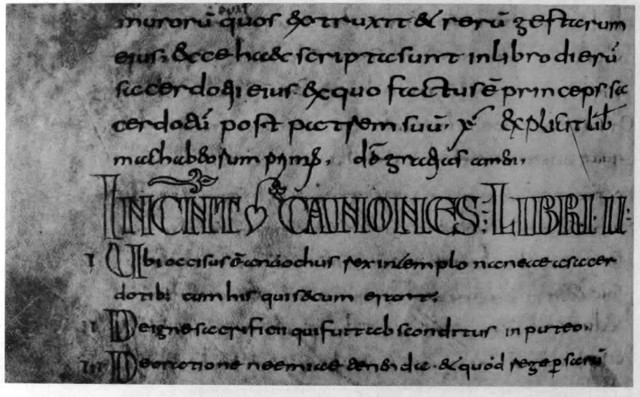 murorū quos extruxit & rerū gestarum
eius; & haec scripta sunt in libro dierū
sacerdotii eius & ex quo factus ē princeps sa
cerdotū post patrem suū. Explicit lib̄
machabeorum dō gratias
INC̄NT CANONES: LIBRI· II·
I Ubi occisus ē rex in templo naneae a sacer
dotibus cum his qui secum erant;
II De igne sacrificii qui fuit absconditus in puteo.
III De oratione neemiae & quod rege persarū